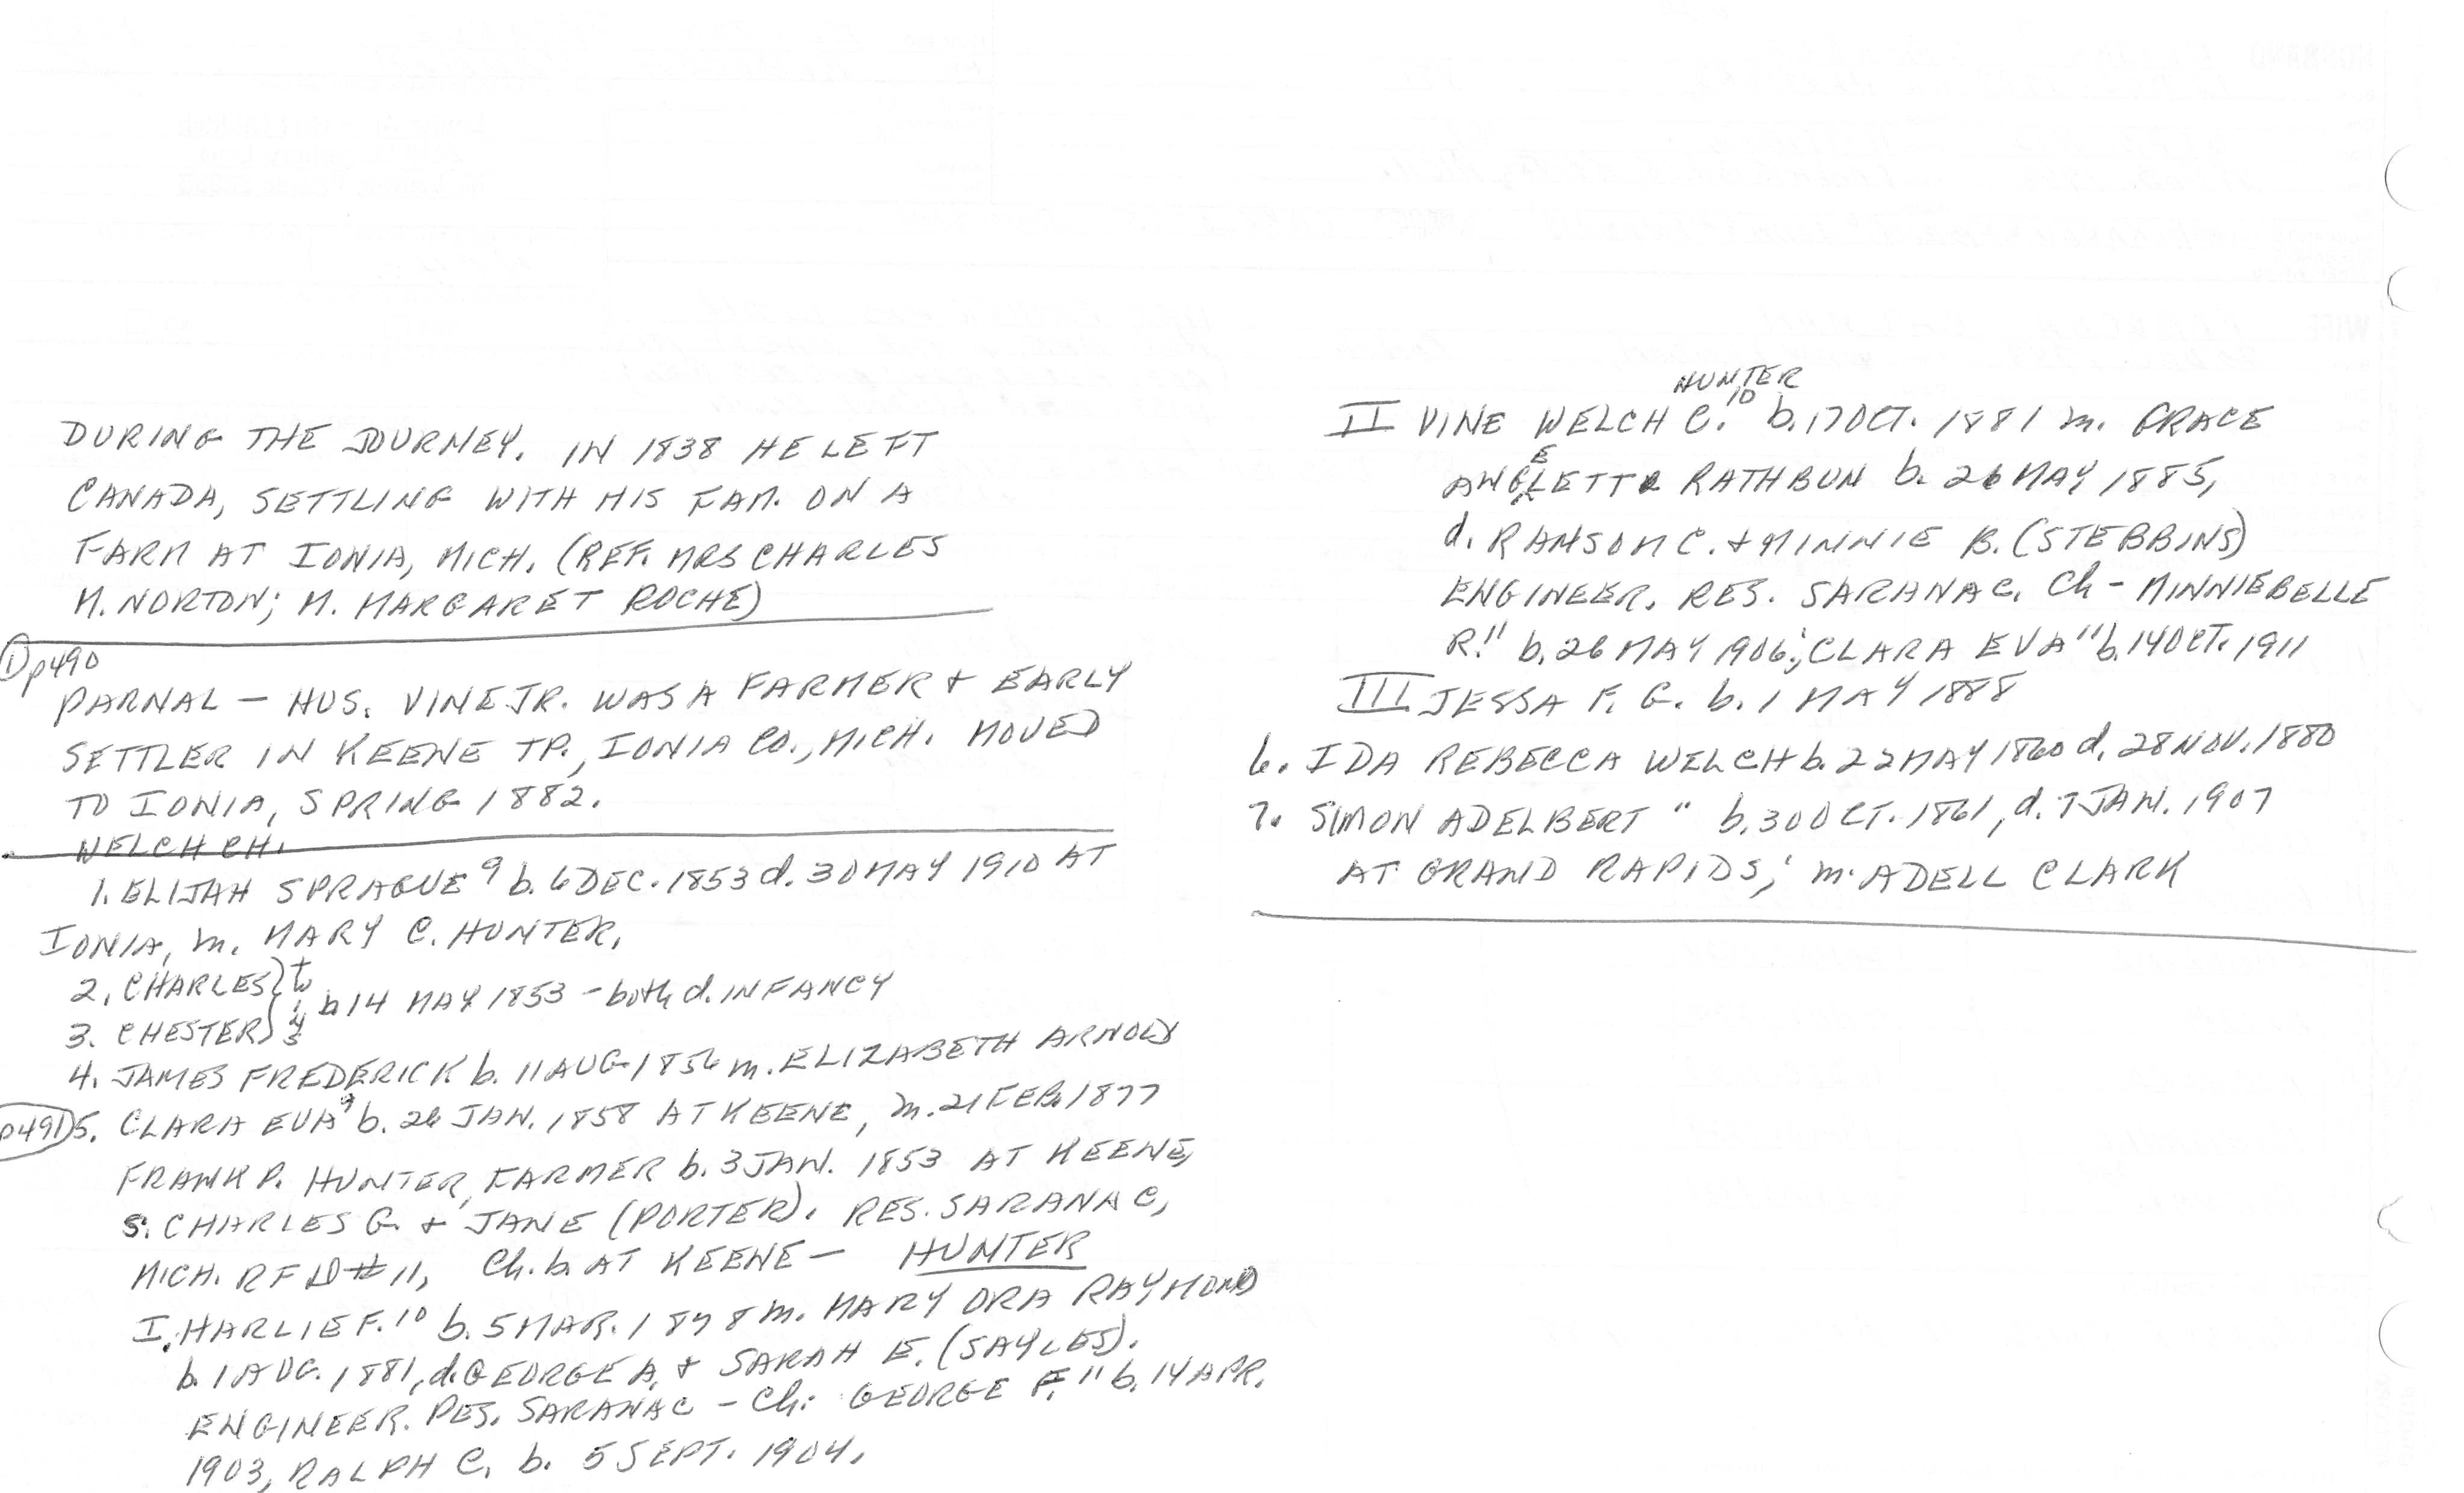 DURING THE JOURNEY. IN 1838 HE LEFT
CANADA, SETTLING WITH HIS FAM. ON A
FARM AT IONIA, MICH. (REF. MRS CHARLES
M. NORTON; M. MARGARET ROCHE)
① p490
PARNAL — HUS. VINE JR. WAS A FARMER & EARLY
SETTLER IN KEENE TP., IONIA CO., MICH. MOVED
TO IONIA, SPRING 1882.
WELCH CH.
1. ELIJAH SPRAGUE⁹ b. 6 DEC. 1853 d. 30 MAY 1910 AT
IONIA, m. MARY C. HUNTER.
2. CHARLES } twins b 14 MAY 1853 - both d. INFANCY
3. CHESTER }
4. JAMES FREDERICK b. 11 AUG. 1856 m. ELIZABETH ARNOLD
p491 5. CLARA EVA⁹ b. 26 JAN. 1858 AT KEENE, m. 21 FEB. 1877
FRANK P. HUNTER, FARMER b. 3 JAN. 1853 AT KEENE,
s. CHARLES G. & JANE (PORTER). RES. SARANAC,
MICH. RFD #11, Ch. b. AT KEENE — HUNTER
I. HARLIE F.¹⁰ b. 5 MAR. 1878 m. MARY ORA RAYMOND
b. 1 AUG. 1881, d. GEORGE A. & SARAH E. (SAYLES).
ENGINEER. RES. SARANAC - Ch: GEORGE F.¹¹ b. 14 APR.
1903, RALPH C. b. 5 SEPT. 1904.
HUNTER
II VINE WELCH C.¹⁰ b. 17 OCT. 1881 m. GRACE
RATHBUN b. 26 MAY 1885,
d. RANSOM C. & MINNIE B. (STEBBINS)
ENGINEER. RES. SARANAC. Ch - MINNIEBELLE
R.¹¹ b. 26 MAY 1906; CLARA EVA¹¹ b. 14 OCT. 1911
III JESSA F. G. b. 1 MAY 1888
6. IDA REBECCA WELCH b. 22 MAY 1860 d. 28 NOV. 1880
7. SIMON ADELBERT " b. 30 OCT. 1861, d. 7 JAN. 1907
AT GRAND RAPIDS; m. ADELL CLARK